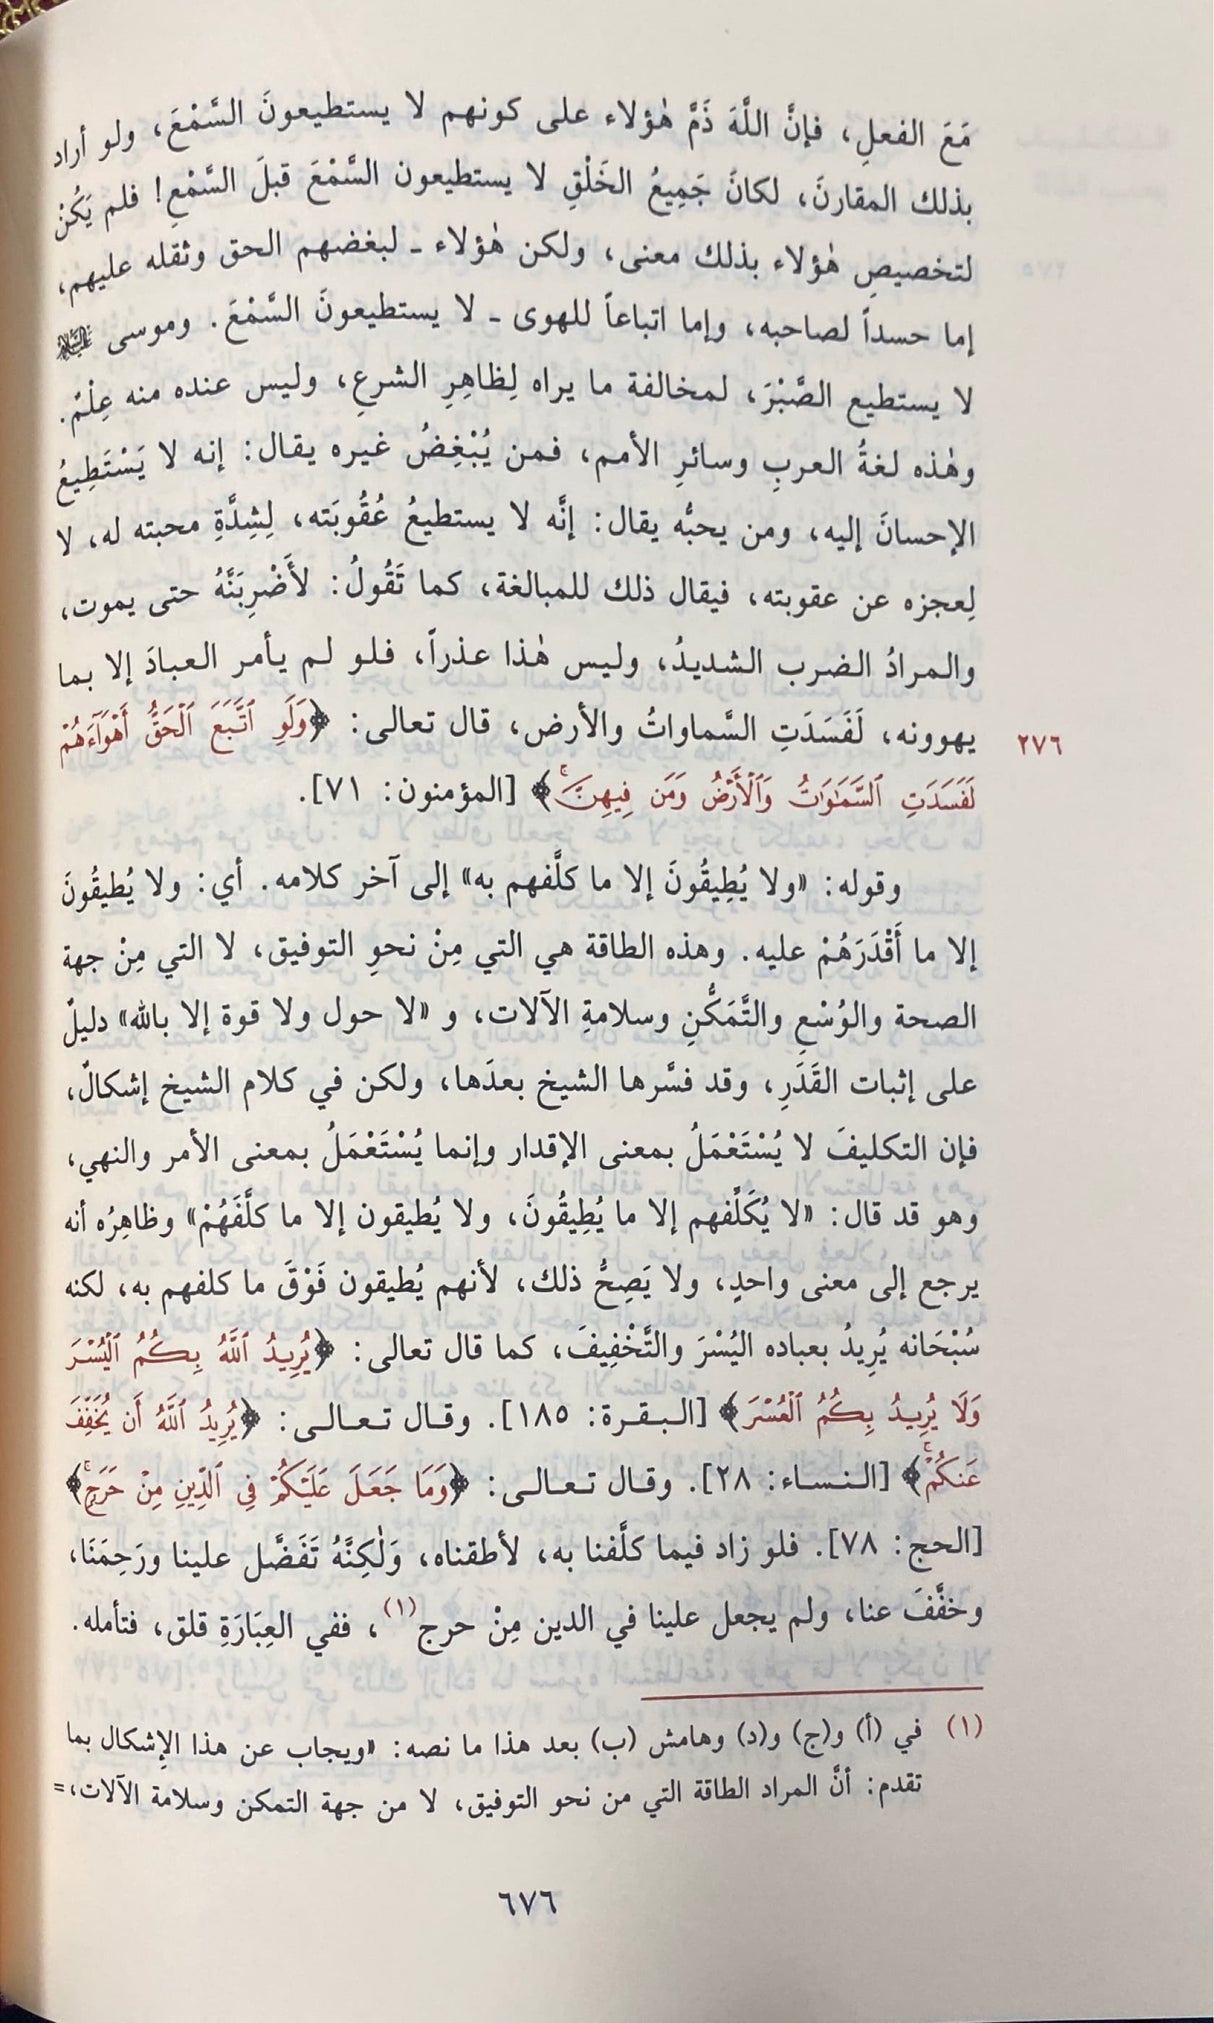 مَعَ الفعلِ، فإنَّ اللَّهَ ذَمَّ هٰؤلاء على كونهم لا يستطيعونَ السَّمْعَ، ولو أراد
بذلك المقارنَ، لكانَ جَمِيعُ الخَلْقِ لا يستطيعون السَّمْعَ قبلَ السَّمْعِ! فلم يَكُنْ
لتخصيصِ هٰؤلاء بذلك معنى، ولكن هٰؤلاء ـ لبغضهم الحق وثقله عليهم،
إما حسداً لصاحبه، وإما اتباعاً للهوى ـ لا يستطيعونَ السَّمْعَ. وموسى عليه السلام
لا يستطيع الصَّبْرَ، لمخالفة ما يراه لِظاهِرِ الشرعِ، وليس عنده منه عِلْمٌ.
وهٰذه لغةُ العربِ وسائرِ الأمم، فمن يُبْغِضُ غيره يقال: إنه لا يَسْتَطِيعُ
الإحسانَ إليه، ومن يحبُّه يقال: إنَّه لا يستطيعُ عُقُوبَته، لِشِدَّةِ محبته له، لا
لِعجزه عن عقوبته، فيقال ذلك للمبالغة، كما تَقُولُ: لأَضْرِبَنَّهُ حتى يموت،
والمرادُ الضرب الشديدُ، وليس هٰذا عذراً، فلو لم يأمر العبادَ إلا بما
يهوونه، لَفَسَدَتِ السَّماواتُ والأرض، قال تعالى: ﴿وَلَوِ ٱتَّبَعَ ٱلْحَقُّ أَهْوَآءَهُمْ
٢٧٦
لَفَسَدَتِ ٱلسَّمَـٰوَٰتُ وَٱلْأَرْضُ وَمَن فِيهِنَّ ۚ﴾ [المؤمنون: ٧١].
وقوله: «ولا يُطِيقُونَ إلا ما كلَّفهم به» إلى آخر كلامه. أي: ولا يُطيقُونَ
إلا ما أَقْدَرَهُمْ عليه. وهذه الطاقة هي التي مِنْ نحوِ التوفيق، لا التي مِنْ جهة
الصحة والوُسْعِ والتَّمَكُّنِ وسلامةِ الآلات، و «لا حول ولا قوة إلا بالله» دليلٌ
على إثبات القَدَرِ، وقد فسَّرها الشيخ بعدَها، ولكن في كلام الشيخ إشكالٌ،
فإن التكليفَ لا يُسْتَعْمَلُ بمعنى الإقدار وإنما يُسْتَعْمَلُ بمعنى الأمر والنهي،
وهو قد قال: «لا يُكَلِّفهم إلا ما يُطِيقُونَ، ولا يُطيقون إلا ما كلَّفَهُمْ» وظاهِرُه أنه
يرجع إلى معنى واحدٍ، ولا يَصِحُّ ذلك، لأنهم يُطيقون فَوْقَ ما كلفهم به، لكنه
سُبْحَانه يُرِيدُ بعباده اليُسْرَ والتَّخْفِيفَ، كما قال تعالى: ﴿يُرِيدُ ٱللَّهُ بِكُمُ ٱلْيُسْرَ
وَلَا يُرِيدُ بِكُمُ ٱلْعُسْرَ﴾ [البقرة: ١٨٥]. وقال تعالى: ﴿يُرِيدُ ٱللَّهُ أَن يُخَفِّفَ
عَنكُمْ ۚ﴾ [النساء: ٢٨]. وقال تعالى: ﴿وَمَا جَعَلَ عَلَيْكُمْ فِى ٱلدِّينِ مِنْ حَرَجٍ ۚ﴾
[الحج: ٧٨]. فلو زاد فيما كلَّفنا به، لأطقناه، وَلٰكِنَّهُ تَفَضَّل علينا ورَحِمَنَا،
وخفَّفَ عنا، ولم يجعل علينا في الدين مِنْ حرج(١)، ففي العِبَارَةِ قلق، فتأمله.
(١) في (أ) و(ج) و(د) وهامش (ب) بعد هذا ما نصه: «ويجاب عن هذا الإشكال بما
تقدم: أنَّ المراد الطاقة التي من نحو التوفيق، لا من جهة التمكن وسلامة الآلات،=
٦٧٦